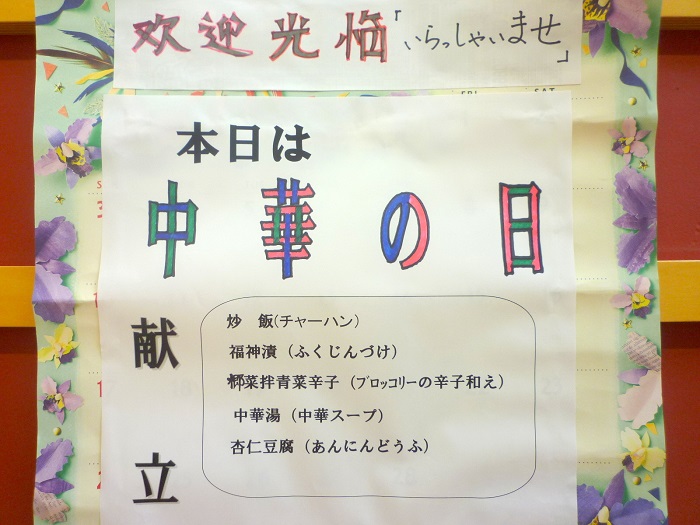 欢迎光临「いらっしゃいませ」
FRI SAT
本日は
中華の日
献立
炒 飯(チャーハン)
福神漬(ふくじんづけ)
菜拌青菜辛子(ブロッコリーの辛子和え)
中華湯(中華スープ)
杏仁豆腐(あんにんどうふ)